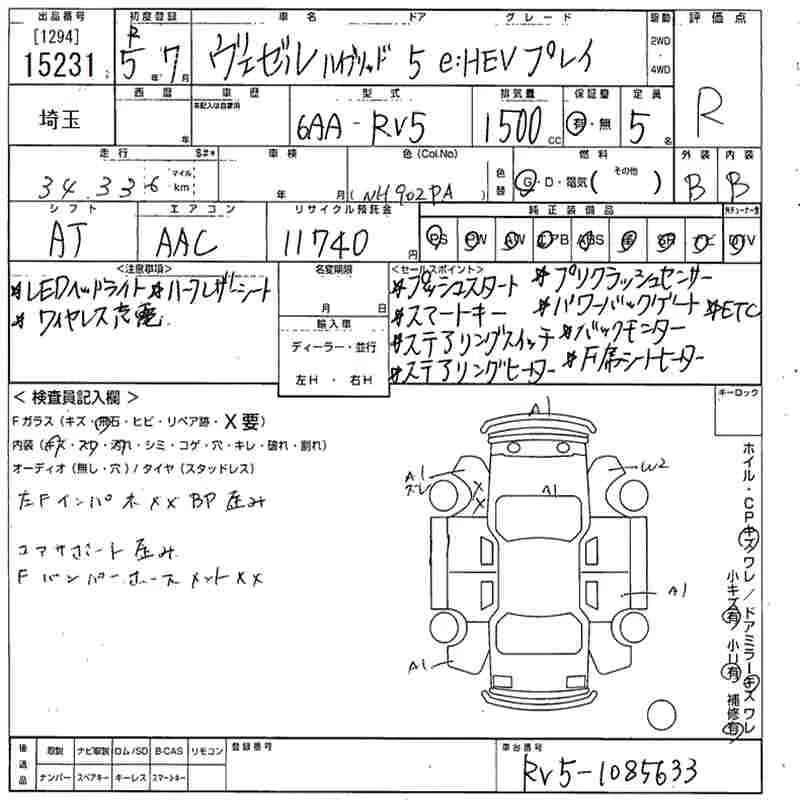 出品番号 初度登録 車名 ドア グレード 駆動 評価点
[1294] R 2WD
15231 5年 7月 ヴェゼル ハイブリッド 5 e:HEV プレイ ・ 4WD
R
埼玉 西暦 車歴 型式 排気量 保証書 定員
年 未記入は自家用 6AA-RV5 1500cc 有・無 5名
走行 S#* 車検 色(Col.No) 燃料 外装 内装
34,336 マイル km 年 月 (NH902PA) 色替 G・D・電気( その他 ) B B
シフト エアコン リサイクル預託金 純正装備品
AT AAC 11740円 PS PW AW
<注意事項> 名変期限 <セールスポイント>
*LEDヘッドライト *ハーフレザーシート 月 日 *プッシュスタート *プリクラッシュセンサー
*ワイヤレス充電 輸入車 *スマートキー *パワーバックゲート *ETC
ディーラー・並行 *ステアリングスイッチ *バックモニター
左H・右H *ステアリングヒーター *F席シートヒーター
<検査員記入欄> キーロック
Fガラス(キズ・飛石・ヒビ・リペア跡・X要)
内装(キズ・スレ・汚れ・シミ・コゲ・穴・キレ・破れ・割れ)
オーディオ(無し・穴)/タイヤ(スタッドレス)
左Fインパネ×× BP歪み
コアサポート歪み
Fバンパーホースメント××
A1
A1
ズレ
X
X
A1
W2
A1
A1
ホイル・CPキズワレ/ドアミラーキズワレ
小キズ有 小凹有 補修有
後送品 取説 ナビ取説 ロム/SD B-CAS リモコン 登録番号 車台番号
ナンバー スペアキー キーレス スマートキー RV5-1085633